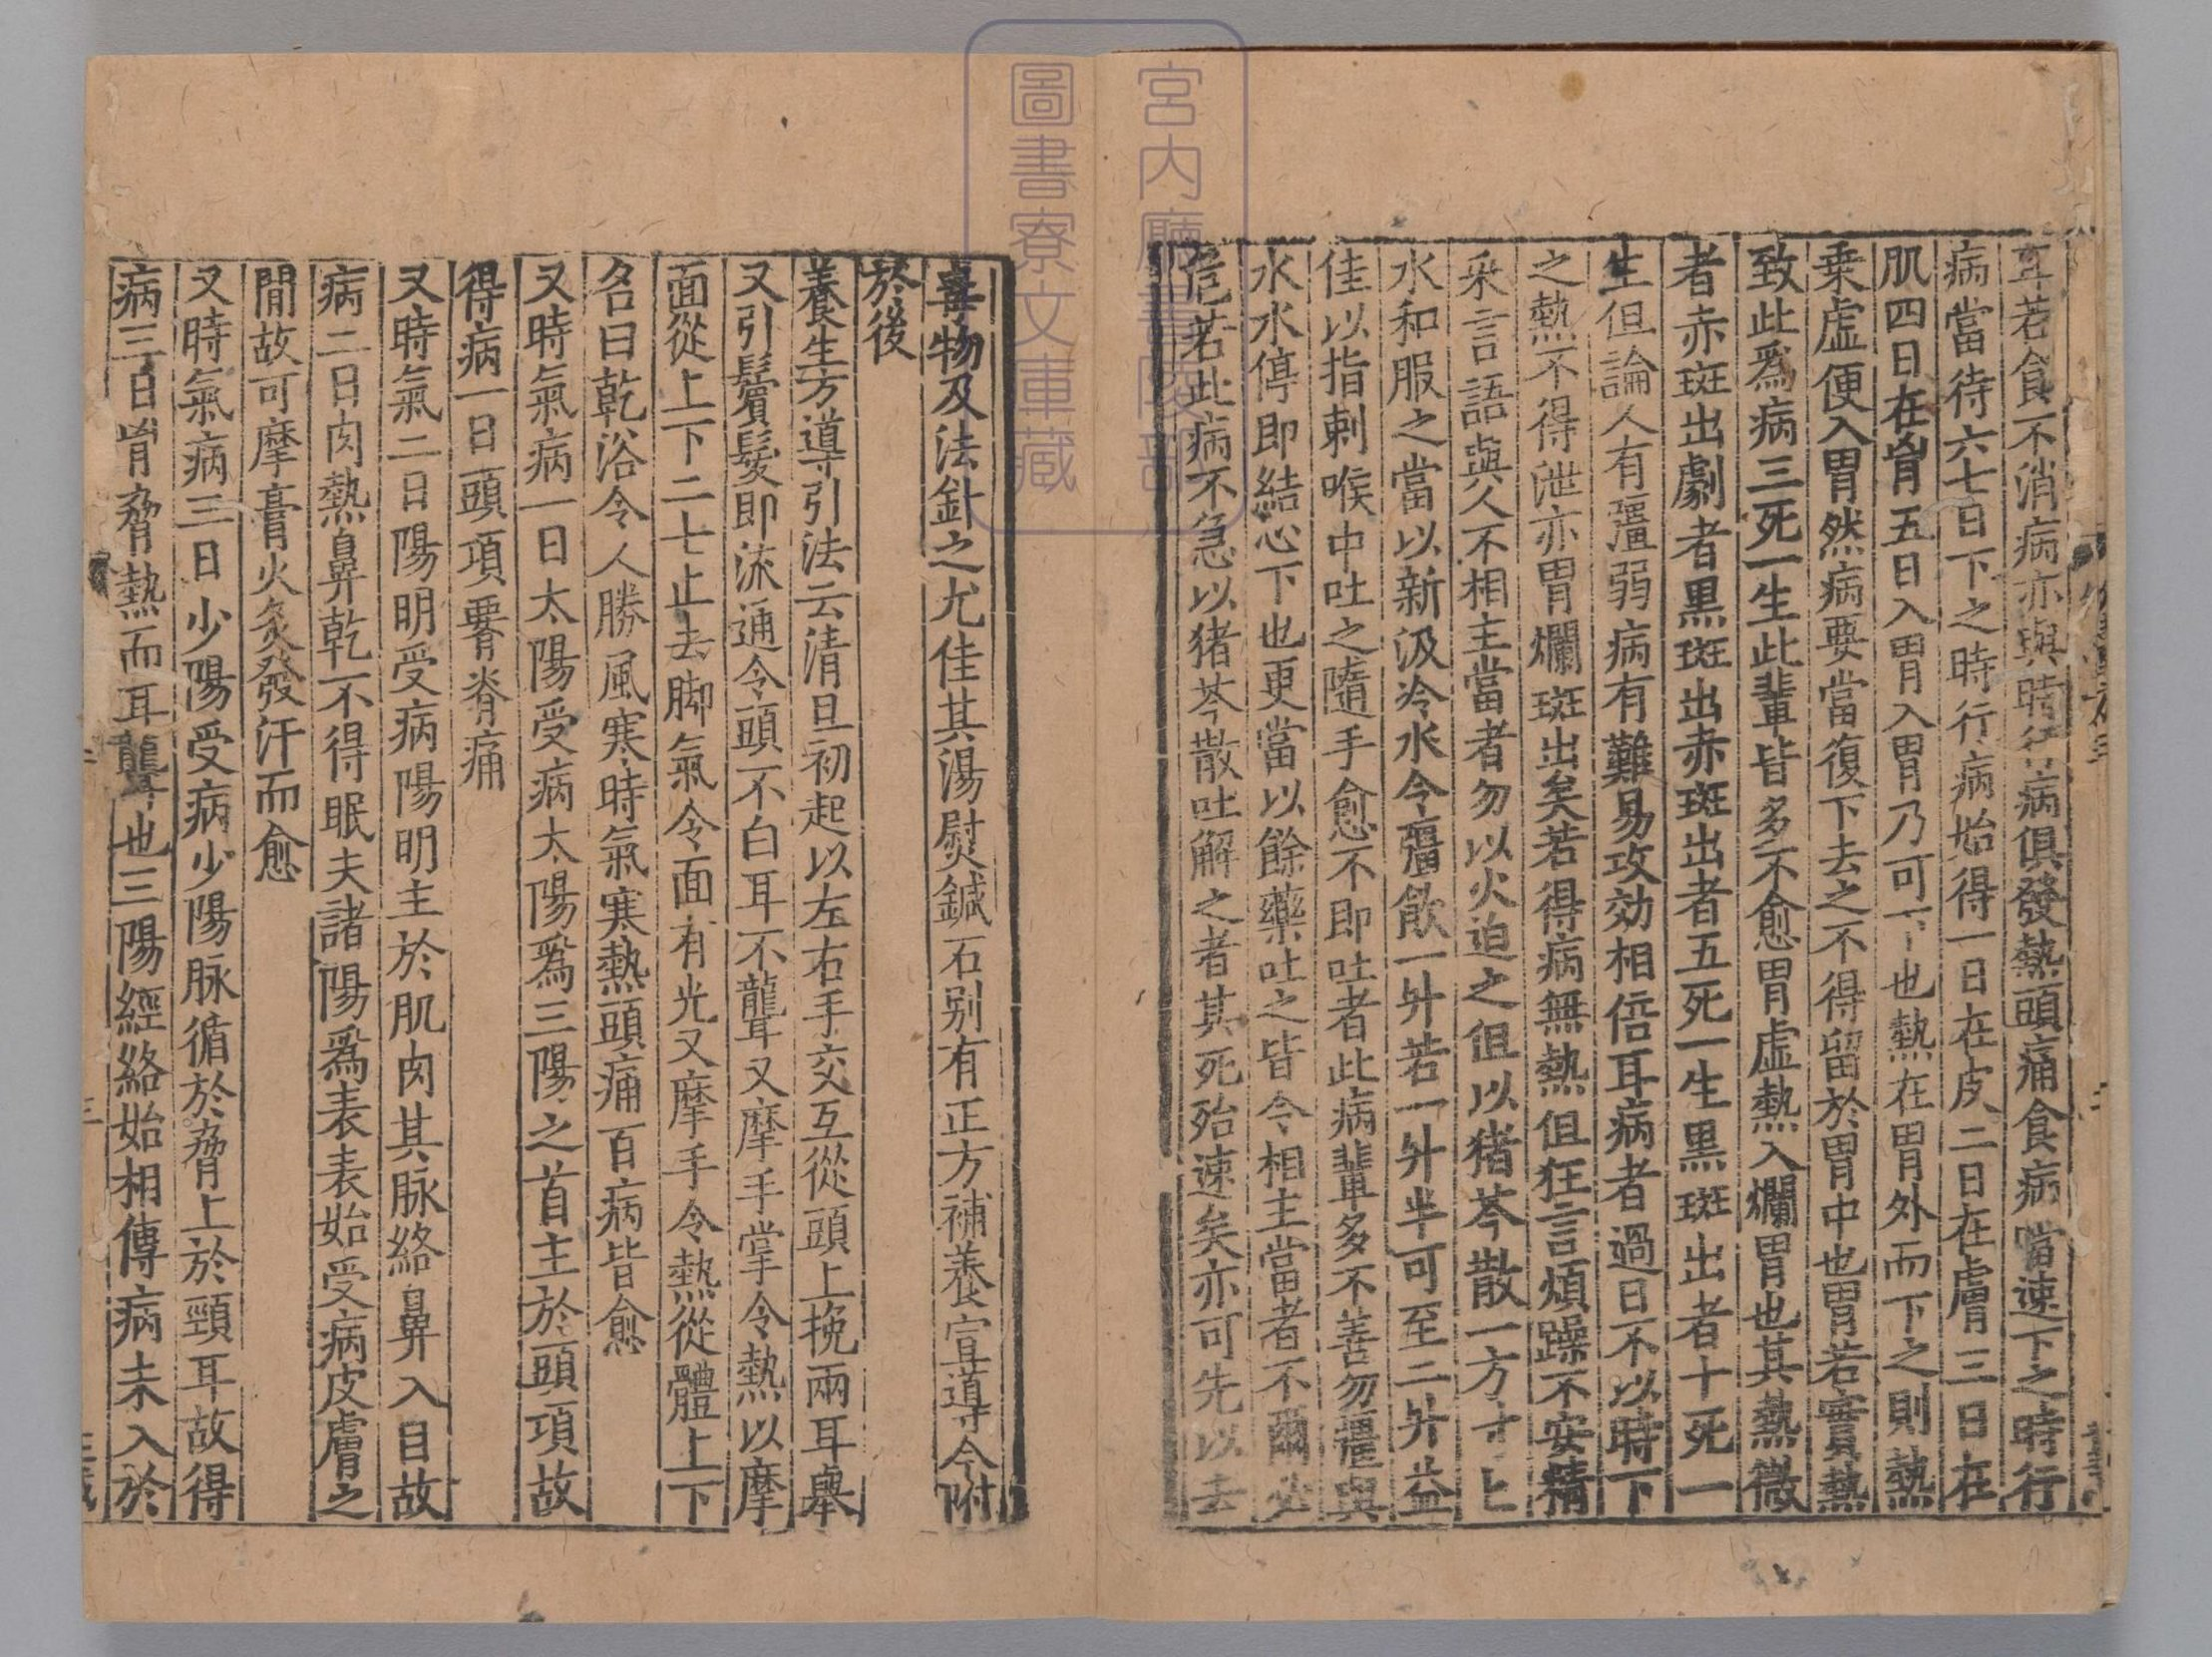 耳若食不消病亦與時行病俱發熱頭痛食病當速下之時行
病當待六七日下之時行病始得一日在皮二日在膚三日在
肌四日在胷五日入胃入胃乃可下也熱在胃外而下之則熱
乗虚便入胃然病要當復下去之不得留於胃中也胃若實熱
致此爲病三死一生此輩皆多不愈胃虚熱入爛胃也其熱微
者赤斑出劇者黒斑出赤斑出者五死一生黒斑出者十死一
生但論人有彊弱病有難易攻効相倍耳病者過日不以時下
之熱不得泄亦胃爛斑出矣若得病無熱但狂言煩躁不安精
采言語與人不相主當者勿以火迫之但以猪苓散一方寸匕
水和服之當以新汲冷水令彊飲一升若一升半可至二升益
佳以指刺喉中吐之隨手愈不即吐者此病輩多不善勿彊與
水水停即結心下也更當以餘藥吐之皆令相主當者不爾必
危若此病不急以猪苓散吐解之者其死殆速矣亦可先以去
毒物及法針之尤佳其湯熨鍼石别有正方補養宣導今附
於後
養生方導引法云清旦初起以左右手交互從頭上挽兩耳舉
又引鬢髮即流通令頭不白耳不聾又摩手掌令熱以摩
面從上下二七止去䏌氣令面有光又摩手令熱從體上下
名曰乾浴令人勝風寒時氣寒熱頭痛百病皆愈
又時氣病一日太陽受病太陽爲三陽之首主於頭項故
得病一日頭項𦝫脊痛
又時氣二日陽明受病陽明主於肌肉其脉絡鼻入目故
病二日肉熱鼻乾不得眠夫諸陽爲表表始受病皮膚之
閒故可摩膏火灸發汗而愈
又時氣病三日少陽受病少陽脉循於脅上於頸耳故得
病三日胷脅熱而耳聾也三陽經絡始相傳病未入於
宮内廳書陵部
圖書寮文庫藏